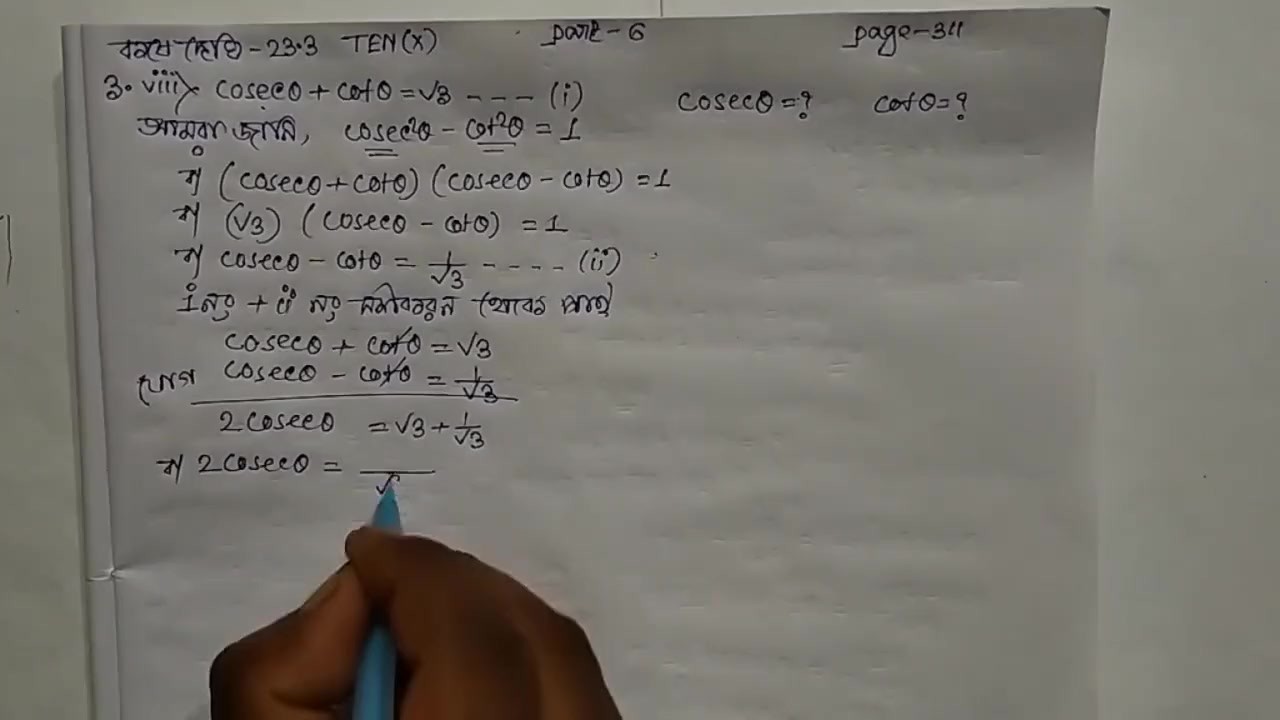 কষে দেখি - 23.3 TEN(X) part - 6 page - 311
3. viii) cosecθ + cotθ = √3 ---- (i) cosecθ = ? cotθ = ?
আমরা জানি, cosec²θ - cot²θ = 1
বা (cosecθ + cotθ) (cosecθ - cotθ) = 1
বা (√3) (cosecθ - cotθ) = 1
বা cosecθ - cotθ = 1/√3 ---- (ii)
i নং + ii নং সমীকরন থেকে পাই
cosecθ + cotθ = √3
যোগ cosecθ - cotθ = 1/√3
2cosecθ = √3 + 1/√3
বা 2cosecθ =